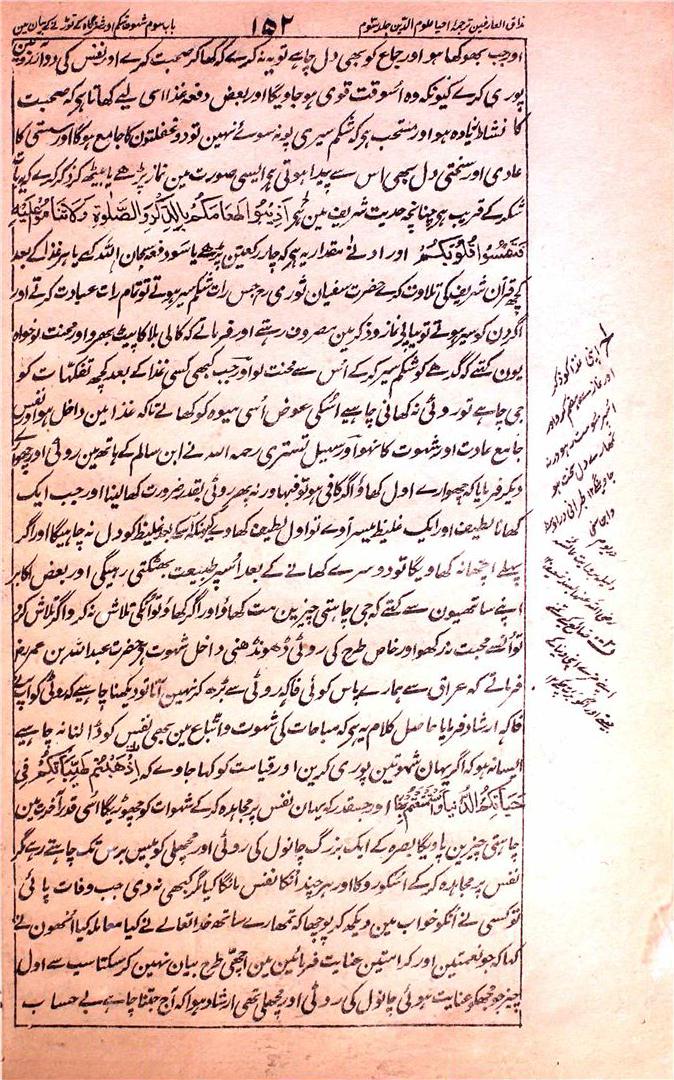 مذاق العارفین ترجمۂ احیاء علوم الدین جلد سوم ۱۵۲ باب سوم شہوت شکم اور شرمگاہ کے توڑنے کے بیان مین
اور جب بھوکھا ہو اور جماع کو بھی دل چاہے تو یہ نہ کرے کہ کھا کر صحبت کرے اور نفس کی دو آرزوئین
پوری کرے کیونکہ وہ اُسوقت قوی ہو جاویگا اور بعض دفعہ غذا اسی لیے کھاتا ہی کہ صحبت
کا نشاط زیادہ ہو اور مستحب ہی کہ شکم سیری پر نہ سوئے نہین تو دو غفلتون کا جامع ہوگا اور سستی کا
عادی اور سختی دل بھی اس سے پیدا ہوتی ہی ایسی صورت مین نماز پڑھے یا بیٹھ کر ذکر کرے کہ یہ بات
شکر کے قریب ہی چنانچہ حدیث شریف مین ہی اَذِيْبُوا طَعَامَكُمْ بِالذِّكْرِ وَالصَّلٰوةِ وَلَا تَنَامُوْا عَلَيْهِ
فَتَقْسُوَا قُلُوْبُكُمْ اور ادنے مقدار یہ ہی کہ چار رکعتین پڑھے یا سو دفعہ سبحان اللہ کہے یا ہر غذا کے بعد
کچھ قرآن شریف کی تلاوت کرے حضرت سفیان ثوری رح جس رات شکم سیر ہوتے تو تمام رات عبادت کرتے اور
اگر دن کو سیر ہوتے تو پیاپی نماز و ذکر مین مصروف رہتے اور فرماتے کہ کالی بلا کا پیٹ بھرو اور محنت لو خواہ
یون کہتے کہ گدھے کو شکم سیر کر کے اُس سے محنت لو اور جب کبھی کسی غذا کے بعد کچھ تفکہات کو
جی چاہے تو روٹی نہ کھانی چاہیے اُسکی عوض اُسی میوہ کو کھالے تاکہ غذا مین داخل ہو اور نفس
جامع عادت اور شہوت کا نہو اور سہیل تستری رحمہ اللہ نے ابن سالم کے ہاتھ مین روٹی اور چھوہارے
دیکھکر فرمایا کہ چھوارے اول کھاؤ اگر کافی ہو تو فبہا ورنہ پھر روٹی بقدر ضرورت کھا لینا اور جب ایک
کھانا لطیف اور ایک غلیظ میسر آوے تو اول لطیف کھاوے کیونکہ اسکے بعد غلیظ کو دل نہ چاہیگا اور اگر
پہلے اچھا نہ کھاویگا تو دوسرے کھانے کے بعد اُسپر طبیعت بھٹکتی رہیگی اور بعض اکابر
اپنے ساتھیون سے کہتے کہ جی چاہتی چیزین مت کھاؤ اور اگر کھاؤ تو اُنکی تلاش نہ کرو اگر تلاش کرو
تو اُنسے محبت نہ رکھو اور خاص طرح کی روٹی ڈھونڈھنی داخل شہوت ہی حضرت عبداللہ بن عمر رض
فرماتے کہ عراق سے ہمارے پاس کوئی فاکہہ روٹی سے بڑھ کر نہین آتا تو دیکھنا چاہیے کہ روٹی کو آپنے
فاکہہ ارشاد فرمایا حاصل کلام یہ ہی کہ مباحات کی شہوت و اتباع مین بھی نفس کو ڈالنا نہ چاہیے
ایسا نہ ہو کہ اگر یہان شہوتین پوری کرین اور قیامت کو کہا جاوے کہ اَذْهَبْتُمْ طَيِّبَاتِكُمْ فِي
حَيَاتِكُمُ الدُّنْيَا وَاسْتَمْتَعْتُمْ بِهَا اور جسقدر کہ یہان نفس پر مجاہدہ کر کے شہوات کو چھوڑیگا اسی قدر آخرت مین
چاہتی چیزین پاویگا بصرہ کے ایک بزرگ چانول کی روٹی اور مچھلی کو بیس برس تک چاہتے رہے مگر
نفس پر مجاہدہ کر کے اُسکو روکا اور ہر چند اُنکا نفس مانگا کیا مگر کبھی نہ دی جب وفات پائی
تو کسی نے اُنکو خواب مین دیکھ کر پوچھا کہ تمھارے ساتھ خدا تعالے نے کیا معاملہ کیا اُنھون نے
کہا کہ جو نعمتین اور کرامتین عنایت فرمائین مین اچھی طرح بیان نہین کر سکتا سب سے اول
چیز جو مجھکو عنایت ہوئی چانول کی روٹی اور مچھلی تھی ارشاد ہوا کہ آج جتنا چاہے بے حساب
اپنی غذا کو ذکر
اور نماز سے ہضم کرو اور
اسپر سوؤ مت ورنہ
تمھارے دل سخت ہو
جاوینگے ۱۲ طبرانی در اوسط